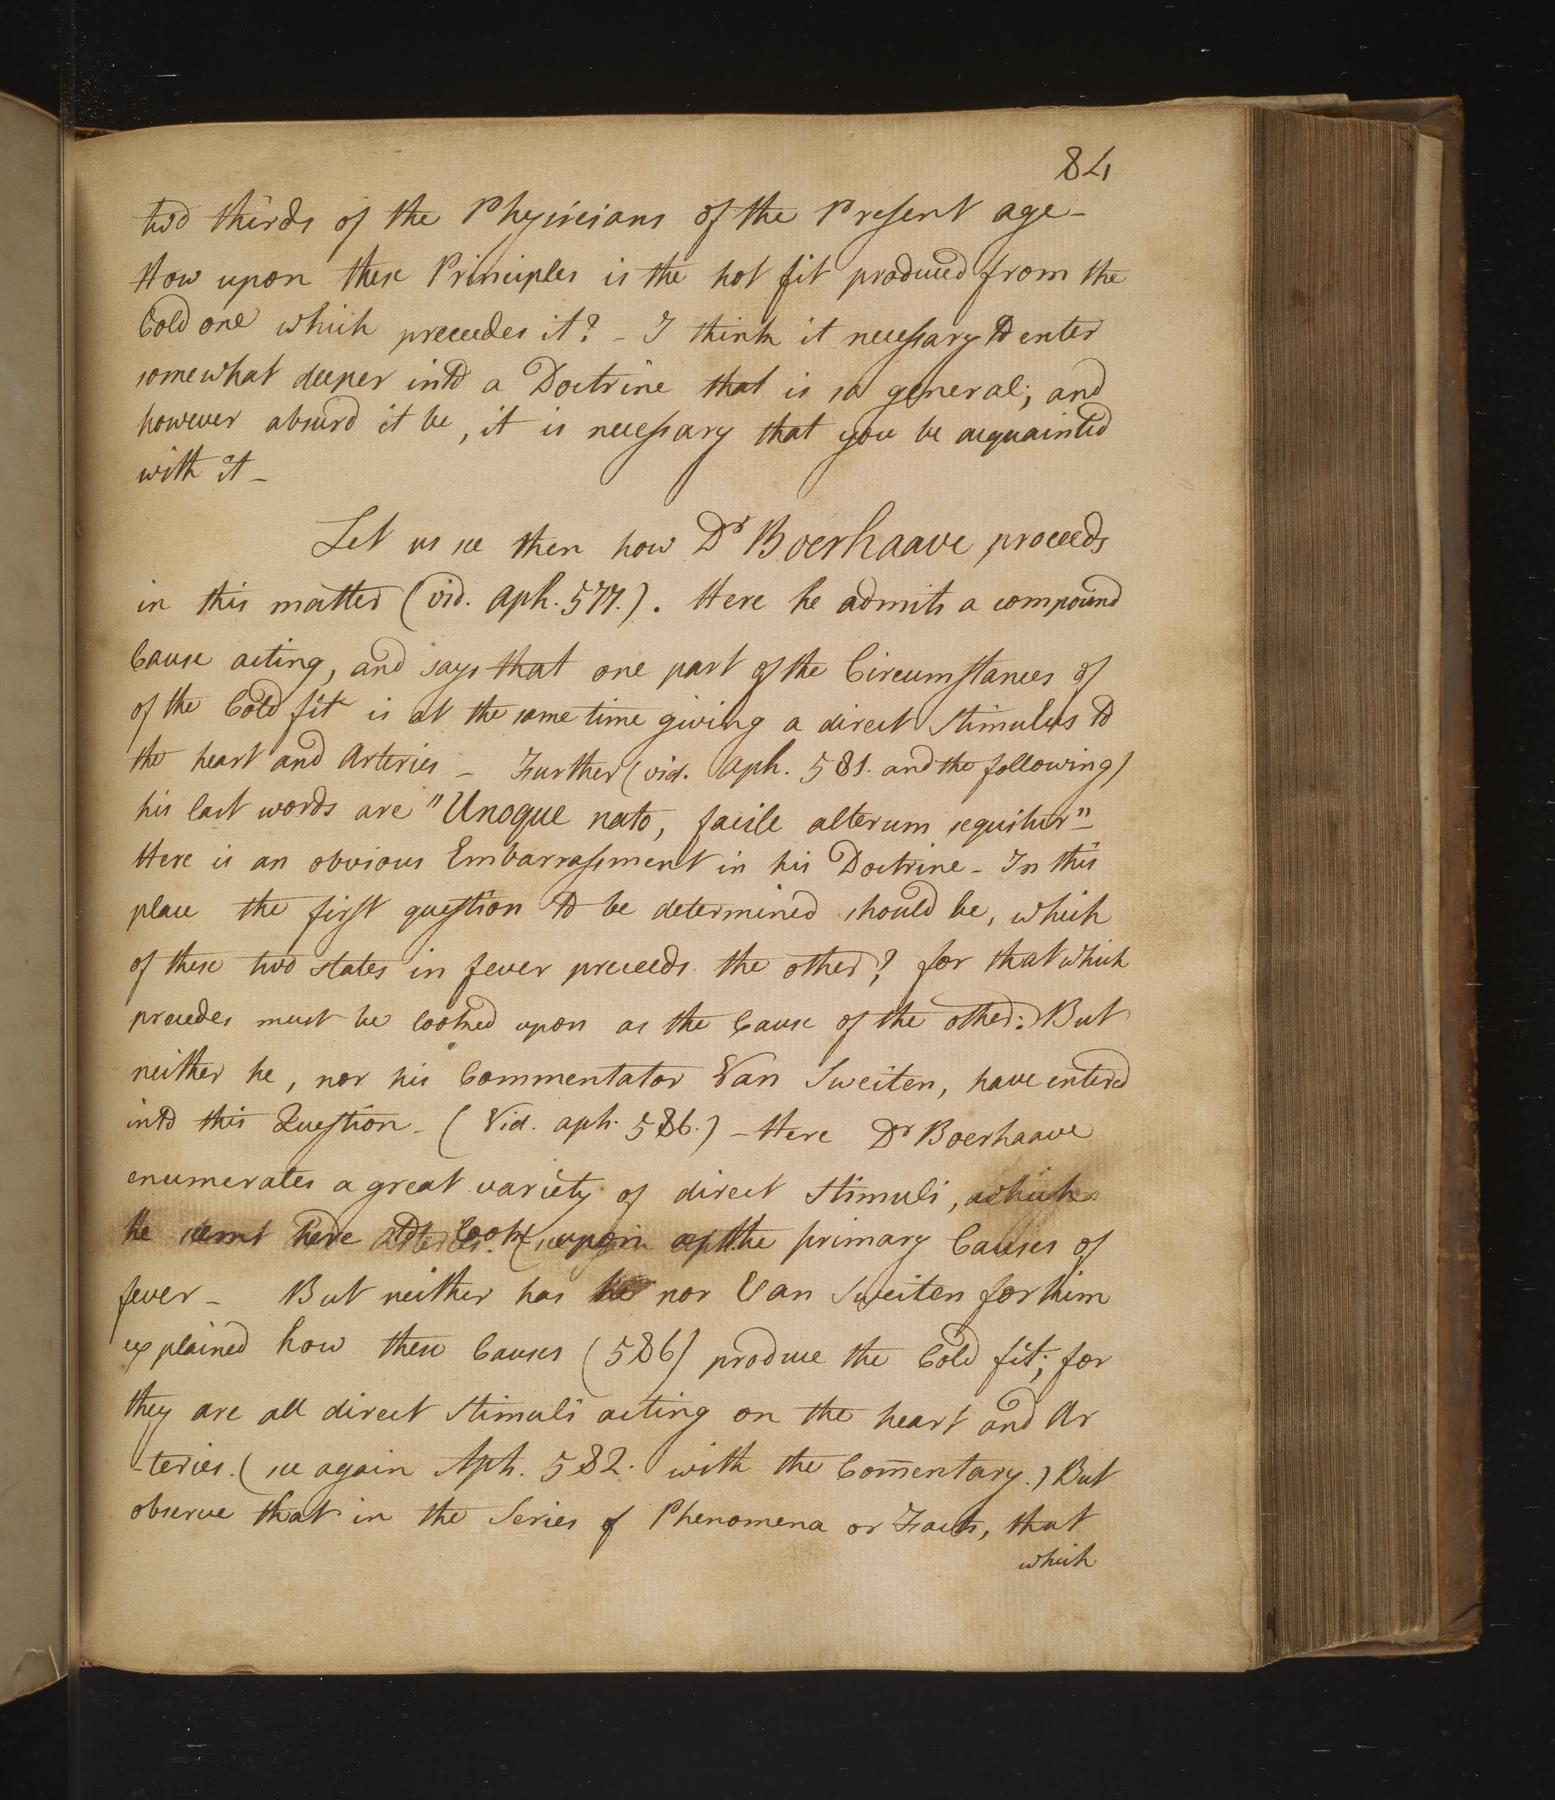 84
two thirds of the Physicians of the Present age -
How upon these Principles is the hot fit produced from the
Cold one which preceedes it? - I think it necessary to enter
somewhat deeper into a Doctrine that is so general; and
however absurd it be, it is necessary that you be acquainted
with it -
Let us see then how Dr Boerhaave proceeds
in this matter (vid. aph. 577.). Here he admits a compound
Cause acting, and says that one part of the Circumstances of
of the Cold fit is at the same time giving a direct Stimulus to
the heart and Arteries - Further (vid. Aph. 581. and the following)
his last words are "Unoque nato, facile alterum sequitur" -
Here is an obvious Embarrassment in his Doctrine - In this
place the first question to be determined should be, which
of these two states in fever preceeds the other? for that which
precedes must be looked upon as the Cause of the other: But
neither he, nor his Commentator Van Sweiten, have entered
into this Question - (Vid. aph. 586.) - Here Dr Boerhaave
enumerates a great variety of direct Stimuli, which
he seems here to look upon as the primary Causes of
fever - But neither has he nor Van Sweiten for him
explained how these Causes (586) produce the Cold fit; for
they are all direct Stimuli acting on the heart and Ar
-teries. (see again Aph. 582. with the Com̄entary.) But
observe that in the Series of Phenomena or Facts, that
which